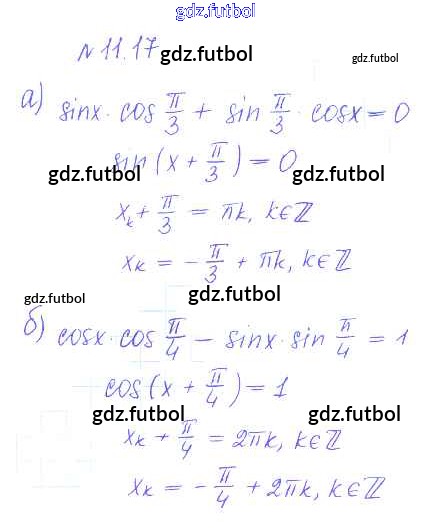 gdz.futbol
N 11.17 gdz.futbol
gdz.futbol
а) sinx · cos π/3 + sin π/3 · cosx = 0
sin (x + π/3) = 0
gdz.futbol gdz.futbol
xₖ + π/3 = πk, k∈ℤ
xₖ = - π/3 + πk, k∈ℤ
gdz.futbol gdz.futbol
б) cosx · cos π/4 - sinx · sin π/4 = 1
cos (x + π/4) = 1
gdz.futbol gdz.futbol
xₖ + π/4 = 2πk, k∈ℤ
xₖ = - π/4 + 2πk, k∈ℤ